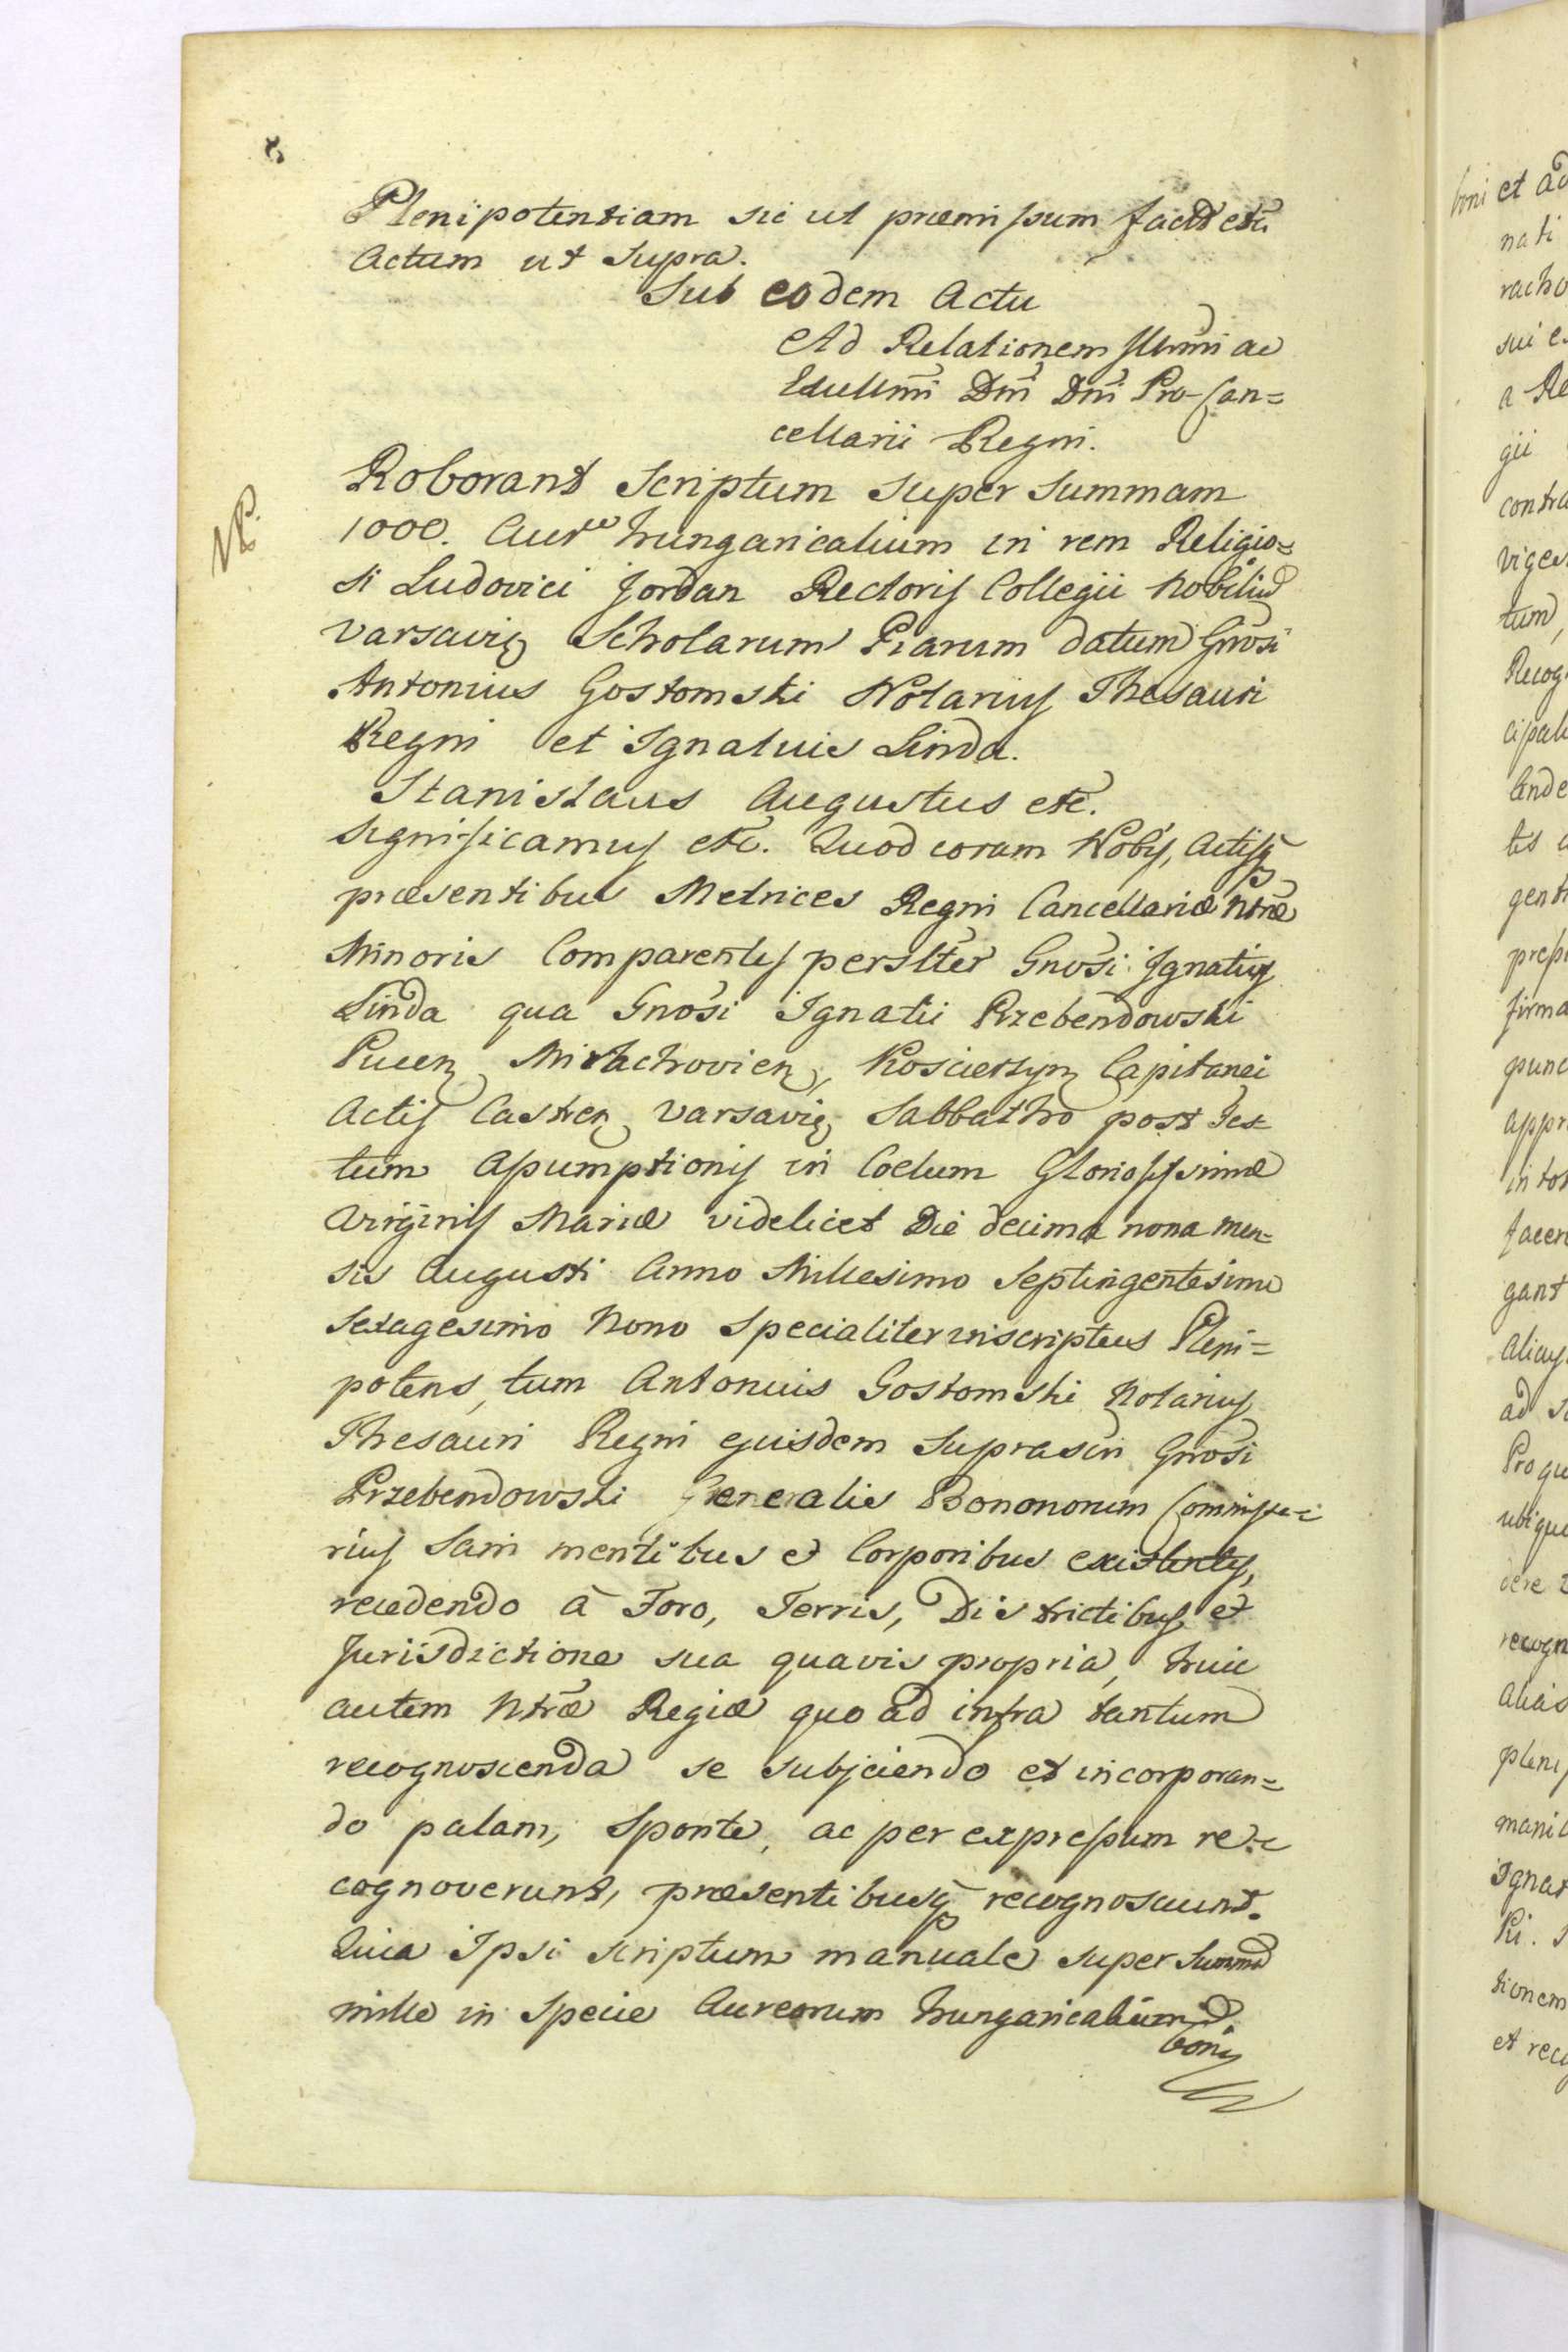 8
Plenipotentiam sic ut præmissum facit etc.
Actum ut supra.
Sub eodem Actu
Ad Relationem Illmi ac
Exellmi Dni Dni Pro-Can=
cellarii Regni.
NB.
Roborant Scriptum super summam
1000. Aureo hungaricalium in rem Religio=
si Ludovici Jordan Rectoris Collegii Nobiliu
Varsavię Scholarum Piarum datum Gnosi
Antonius Gostomski Notarius Thesauri
Regni et Ignatius Linda.
Stanislaus Augustus etc.
Significamus etc. Quod coram Nobis, Actisq
præsentibus Metrices Regni Cancellariæ Ntræ
Minoris Comparentes persltēr Gnosi Ignatius
Linda qua Gnosi Ignatii Przebendowski
Pucen, Mirachovien, Kosciersyn Capitanei
Actis Castren Varsavię Sabbatho post Fes=
tum Assumptionis in Coelum Gloriosissimæ
Virginis Mariæ videlicet Die decima nona men=
sis Augusti Anno Millesimo Septingentesimo
Sexagesimo Nono Specialiter inscriptus Pleni=
potens, tum Antonius Gostomski Notarius
Thesauri Regni ejusdem suprascri Gnosi
Przebendowski Generalis Bononorum Commissa=
rius Sani mentibus et Corporibus existentes,
recedendo à Foro, Terris, Districtibus et
Jurisdictione sua quavis propria, huic
autem Ntræ Regiæ quo ad infra tantum
recognoscenda se subjciendo et incorporan=
do palam, sponte, ac per expressum re=
cognoverunt, præsentibusq recognoscunt.
Quia Ipsi scriptum manuale super Summa
mille in Specie Aureorum hungaricalium
bonis